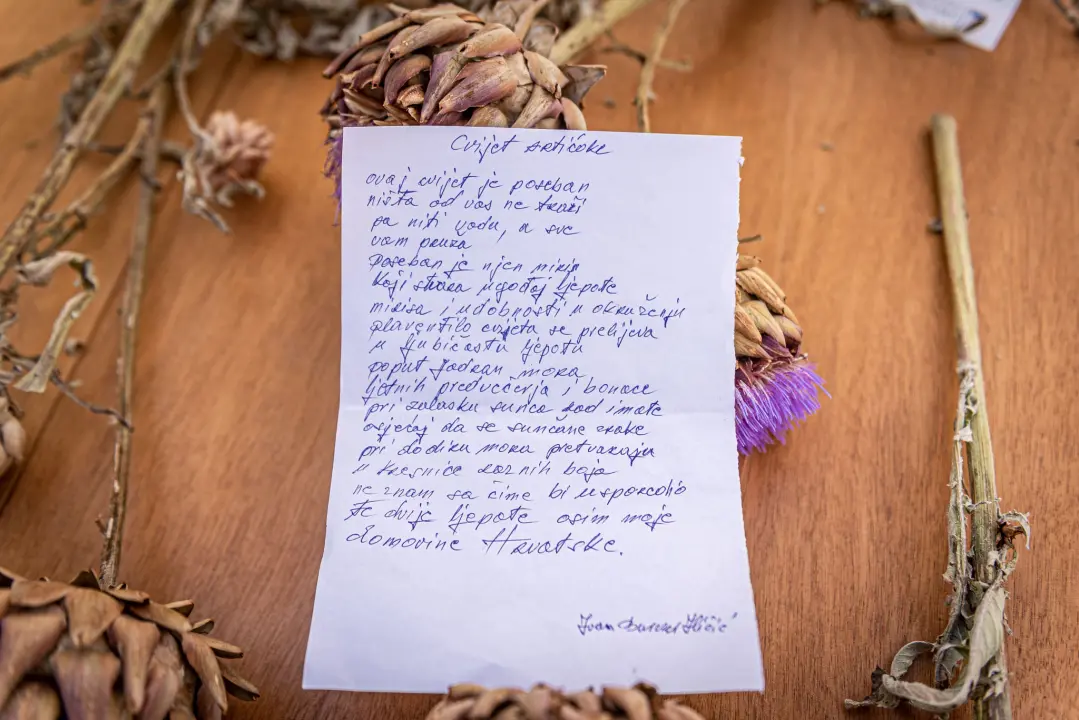 Cvijet artičoke
ovaj cvijet je poseban
ništa od vas ne traži
pa niti vodu, a sve
vam pruža
Poseban je njen miris
koji stvara ugođaj ljepote
mirisa i udobnosti u okružčeju
plavetnilo cvijeta se prelijeva
u ljubičastu ljepotu
poput Jadran mora
ljetnih predvečerja i bonace
pri zalasku sunca kad imate
osjećaj da se sunčane zrake
pri dodiru mora pretvaraju
u kresnice raznih boja
ne znam sa čime bi usporedio
te dvije ljepote osim moje
domovine Hrvatske.
Ivan Iličić